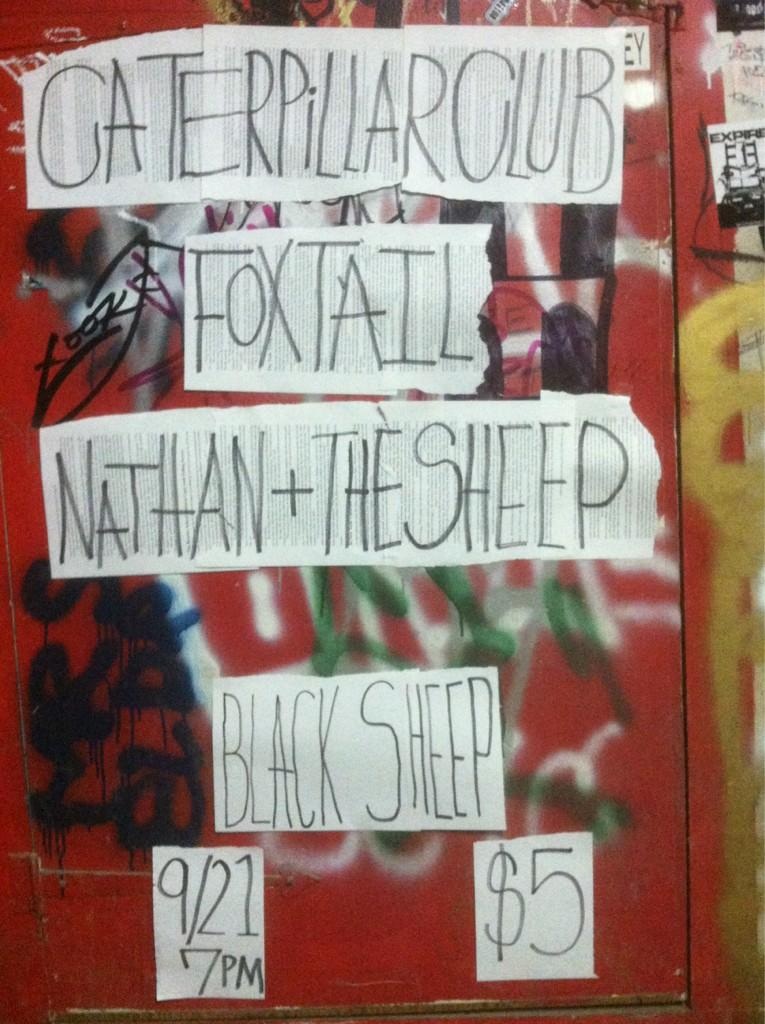 CATERPILLAR CLUB
EY
EXPIRE
FOXTAIL
NATHAN + THE SHEEP
BLACK SHEEP
9/21
7PM
$5